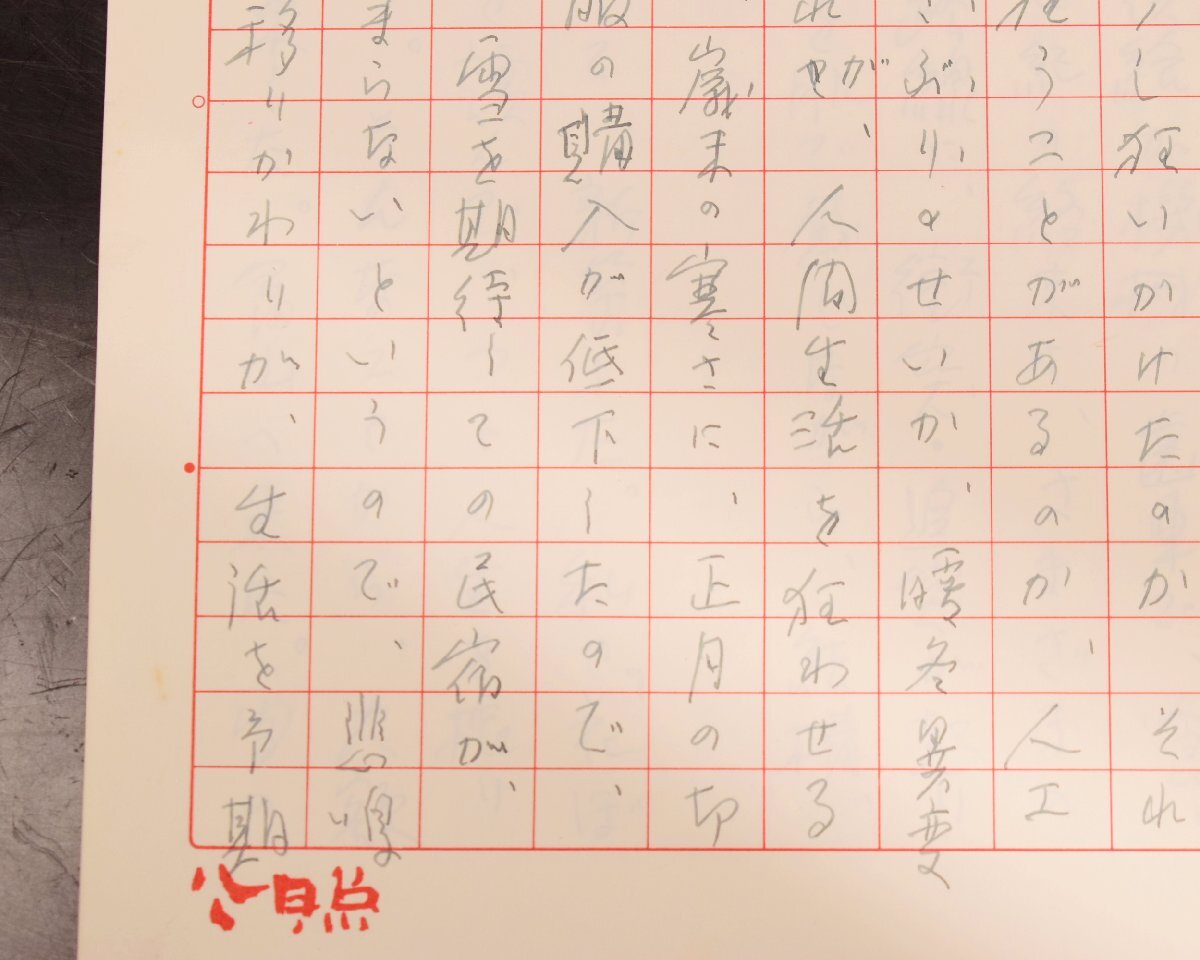 し狂いかけたのか それ
うことがあるのか、人工
ぶりのせいか、暖冬異変
が、人間生活を狂わせる
歳末の寒さに、正月の切
服の購入が低下したので、
雪を期待しての民宿が、
まらないというので、悲
移りかわりが、生活を予期